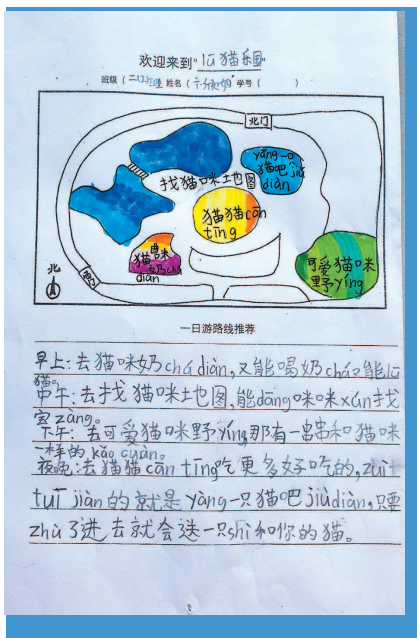 欢迎来到“lǚ猫乐园”
班级（二（）班）姓名（）学号（ ）
北门
yǎng一只
猫吧jiǔ
diàn
找猫咪土也图
猫猫cān
tīng
猫咪
奶chá
diàn
可爱猫咪
野yíng
北
西门
一日游路线推荐
早上：去猫咪奶chádiàn，又能喝奶chá又能lǚ
猫。
中午：去找猫咪土也图，能dāng咪咪xún找
宝zàng。
下午：去可爱猫咪野yíng那有一串串和猫咪
一样的kǎo cuàn。
夜晚：去猫猫cān tīng吃更多好吃的，zuì
tuī jiàn的就是yàng一只猫吧jiǔdiàn，只要
zhù了进去就会送一只shǐ和你的猫。